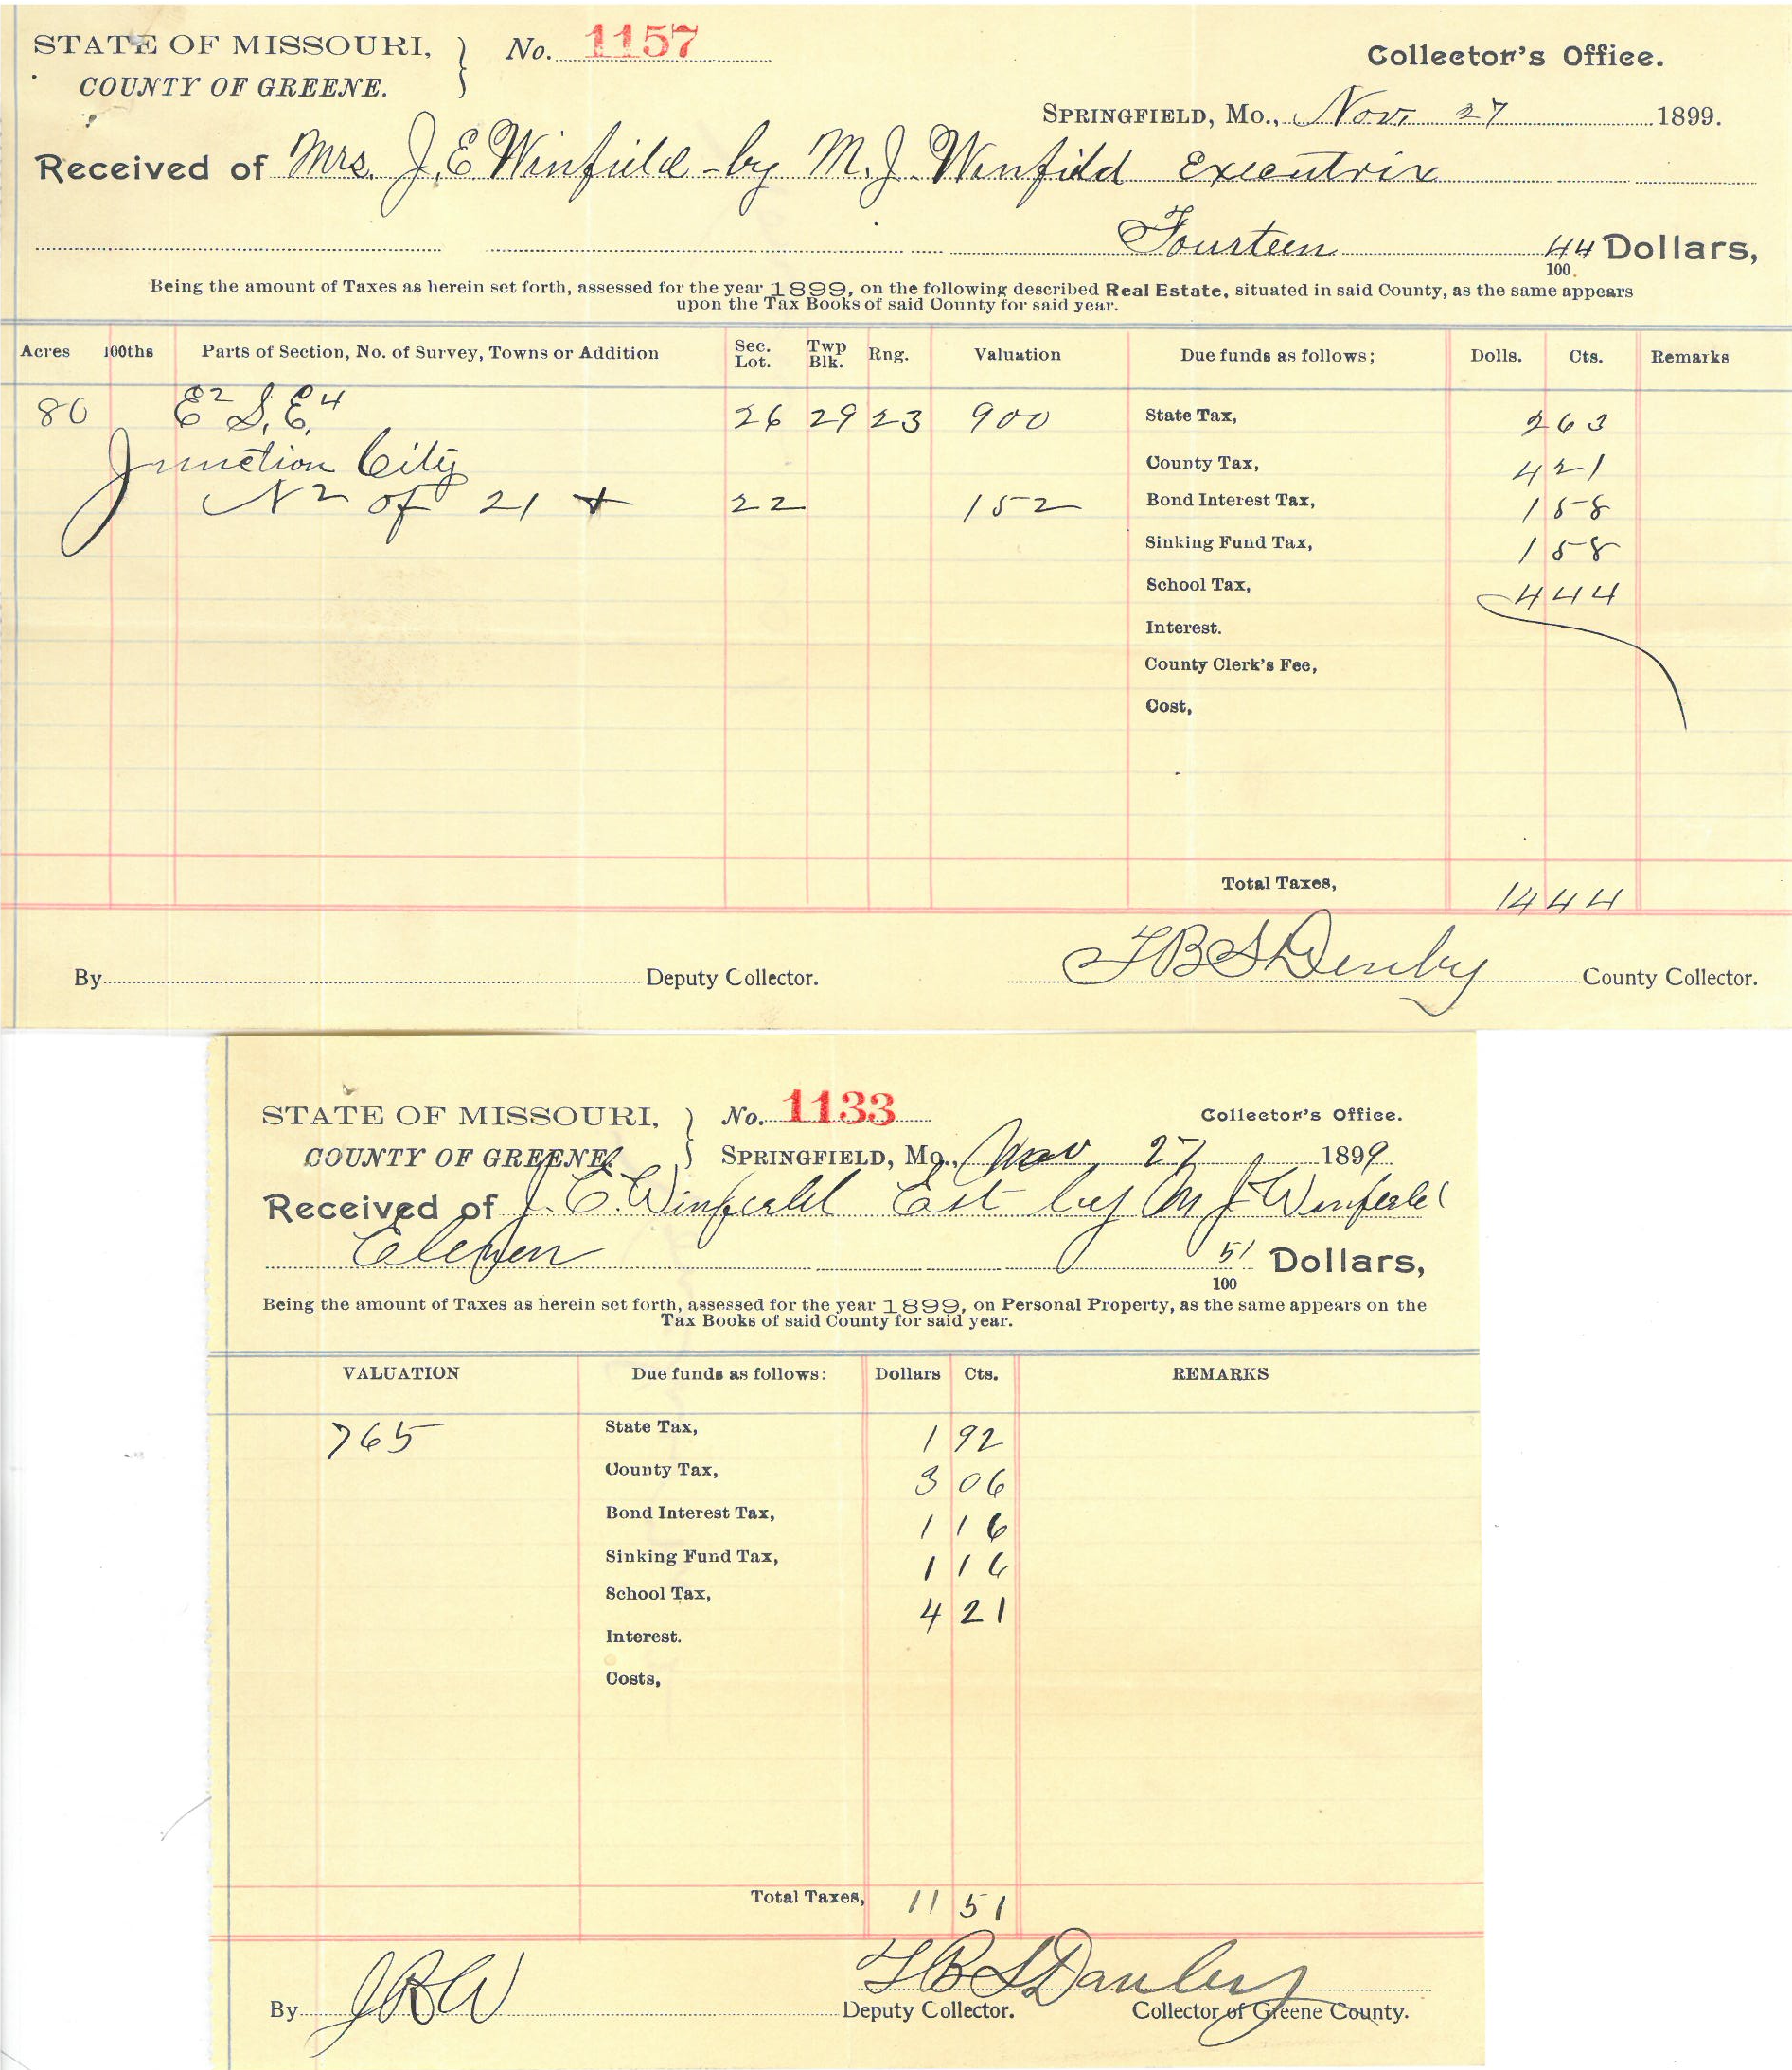 STATE OF MISSOURI, } No. 1157 Collector's Office.
COUNTY OF GREENE.
SPRINGFIELD, Mo., Nov. 27 1899.
Received of Mrs. J. E Winfield - by M. J. Winfield Executrix
Fourteen 44/100 Dollars,
Being the amount of Taxes as herein set forth, assessed for the year 1899, on the following described Real Estate, situated in said County, as the same appears
upon the Tax Books of said County for said year.
Acres 100ths Parts of Section, No. of Survey, Towns or Addition Sec. Lot. Twp Blk. Rng. Valuation Due funds as follows; Dolls. Cts. Remarks
80 E2 S.E.4 26 29 23 900 State Tax, 2 63
Junction City County Tax, 4 21
N2 of 21 + 22 152 Bond Interest Tax, 1 58
Sinking Fund Tax, 1 58
School Tax, 4 44
Interest.
County Clerk's Fee,
Cost,
Total Taxes, 14 44
By Deputy Collector. County Collector.
STATE OF MISSOURI, } No. 1133 Collector's Office.
COUNTY OF GREENE. SPRINGFIELD, Mo., Nov 27 1899.
Received of J. E. Winfield Est by M J Winfield
Eleven 51/100 Dollars,
Being the amount of Taxes as herein set forth, assessed for the year 1899, on Personal Property, as the same appears on the
Tax Books of said County for said year.
VALUATION Due funds as follows: Dollars Cts. REMARKS
765 State Tax, 1 92
County Tax, 3 06
Bond Interest Tax, 1 16
Sinking Fund Tax, 1 16
School Tax, 4 21
Interest.
Costs,
Total Taxes, 11 51
By JBW Deputy Collector. Collector of Greene County.